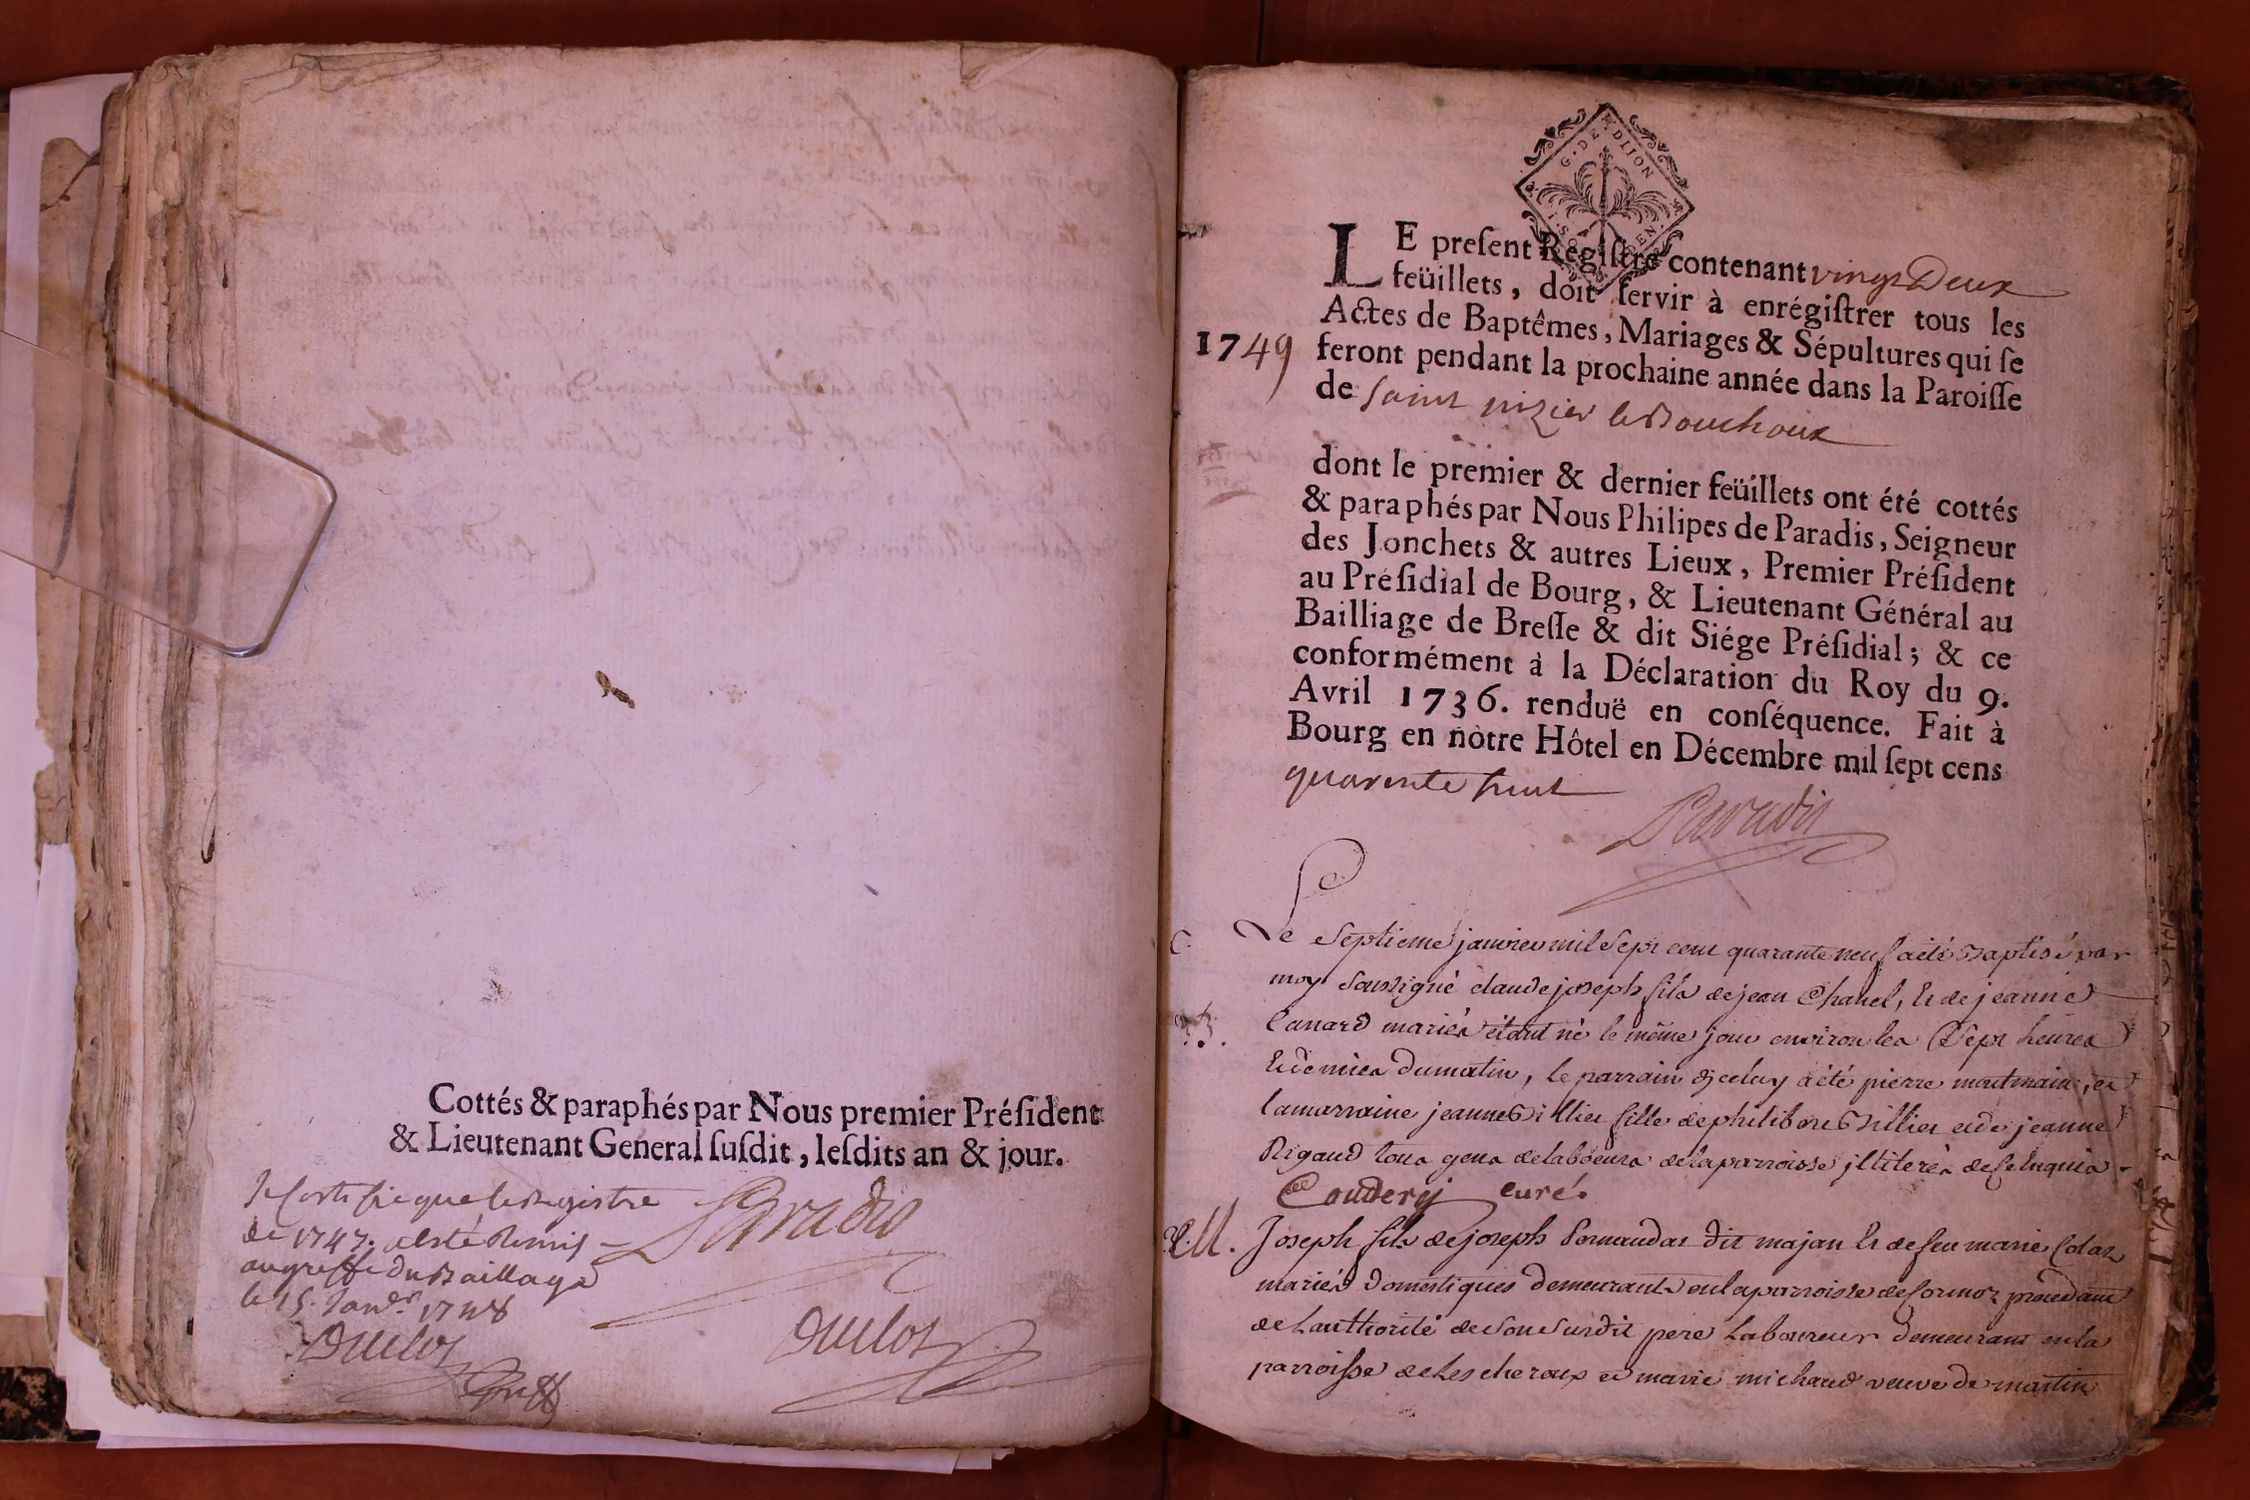 Cottés & paraphés par Nous premier Préſident
& Lieutenant General ſuſdit, leſdits an & jour.
Je Certifie que le Registre
de 1747. a esté Remis
au greffe du Baillage
le 15. Janvr. 1748
Paradis
Duclos
Duclos
Greff
G. DE DIION
LE preſent Regiſtre contenant vingt Deux
feüillets, doit ſervir à enrégiſtrer tous les
Actes de Baptêmes, Mariages & Sépultures qui ſe
1749 feront pendant la prochaine année dans la Paroiſſe
de Saint nizier le Bouchoux
dont le premier & dernier feüillets ont été cottés
& paraphés par Nous Philipes de Paradis, Seigneur
des Jonchets & autres Lieux, Premier Préſident
au Préſidial de Bourg, & Lieutenant Général au
Bailliage de Breſſe & dit Siége Préſidial; & ce
conformément à la Déclaration du Roy du 9.
Avril 1736. renduë en conſéquence. Fait à
Bourg en nòtre Hôtel en Décembre mil ſept cens
quarente huit
Paradis
Le Septieme janvier mil Sept cent quarante neuf a été Baptisé par
moy Soussigné claude joseph fils de jean Chanel, et de jeanne
Canard mariés étant né le même jour environ les Sept heures
et demies du matin, le parrain d'jceluy a été pierre montmain, et
la marraine jeanne Billier fille de philibert Billier et de jeanne
Rigaud tous gens de labeurs de la parroisse jlliterés de ce Enquis.
Coudery curé.
M. Joseph fils de joseph dit majan et de feu marie
mariés Domestiques demeurants en la parroisse de Cormoz procedant
de l'authorité de Son Susdit pere Laboureur demeurant en la
parroisse de Lescheroux et marie michaud veuve de martin